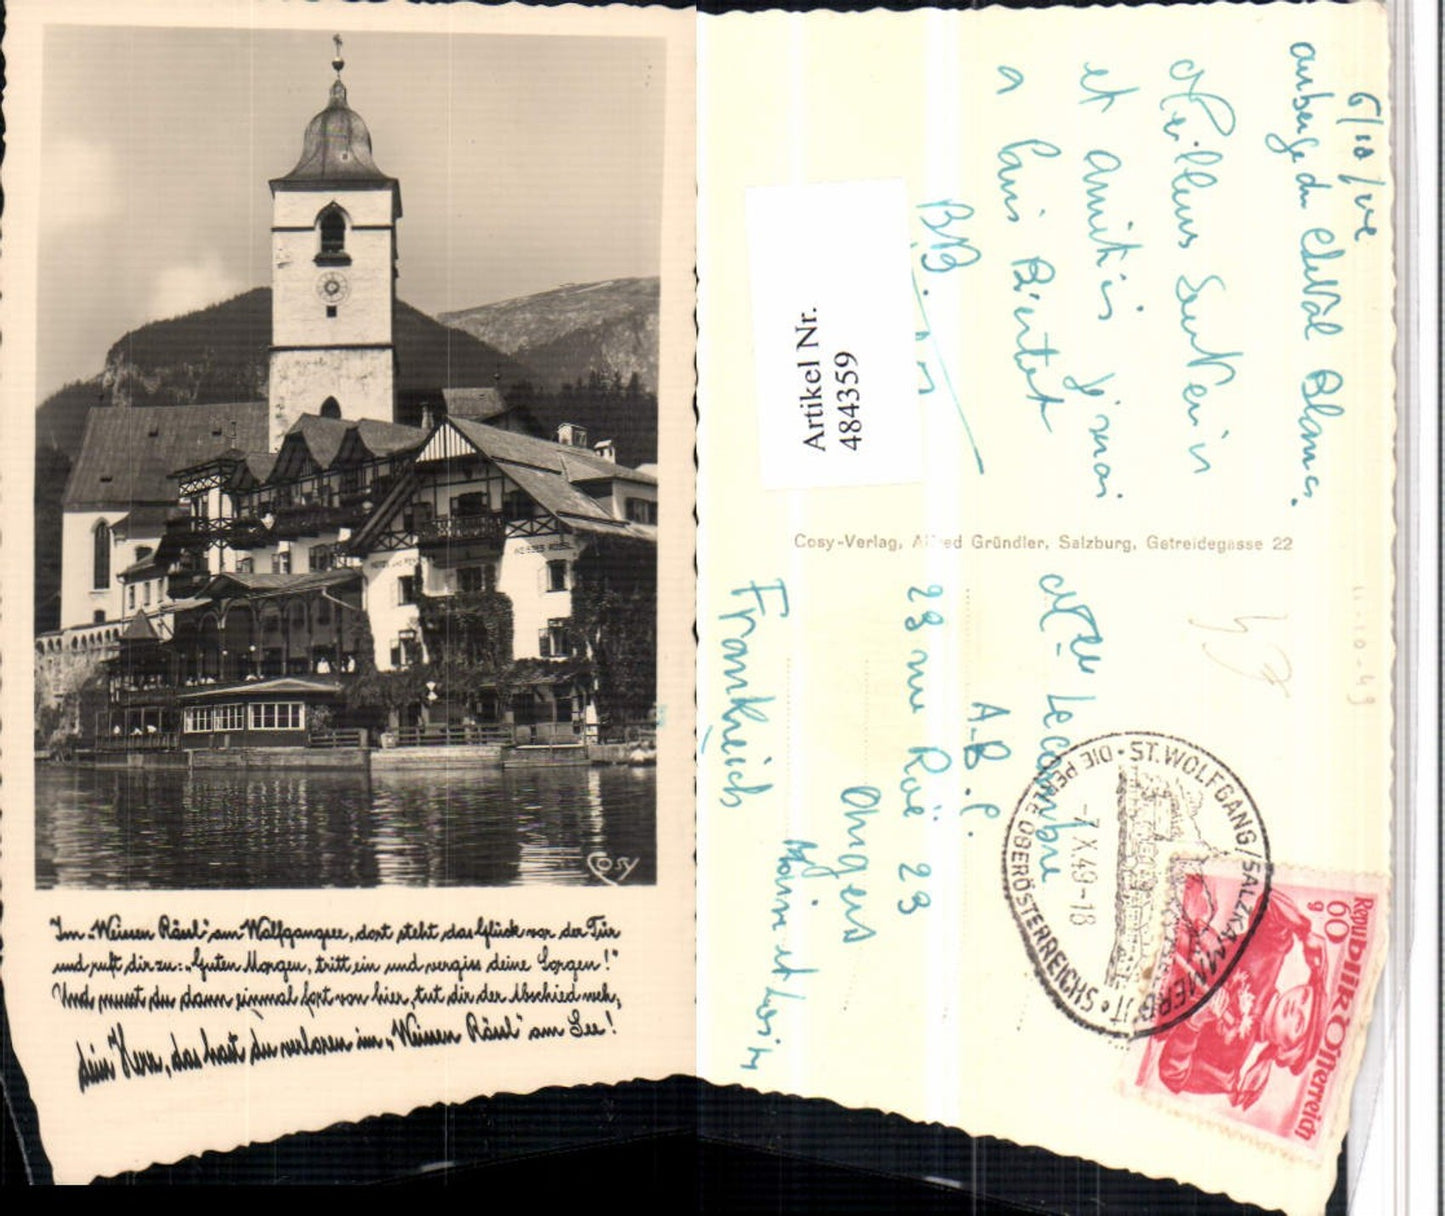 WEISSES RÖSSL
Cosy
Im „Weissen Rössl“ am Wolfgangsee, dort steht das Glück vor der Tür
und ruft dir zu: „Guten Morgen, tritt ein und vergiss deine Sorgen!“
Und musst du dann einmal fort von hier, tut dir der Abschied weh,
dein Herz, das hast du verloren im „Weissen Rössl“ am See!
auberge du Cheval Blanc.
Meilleurs Souvenirs
et amitiés
a Paris Bientot
B.B.
Artikel Nr.
484359
Cosy-Verlag, Alfred Gründler, Salzburg, Getreidegasse 22
11-10-49
Melle Lecombre
A.B.C.
23 rue Roë 23
Angers
Maine et Loire
Frankreich
ST. WOLFGANG, SALZKAMMERGUT • DIE PERLE OBERÖSTERREICHS •
-7.X.49-18
Republik Österreich
60
g